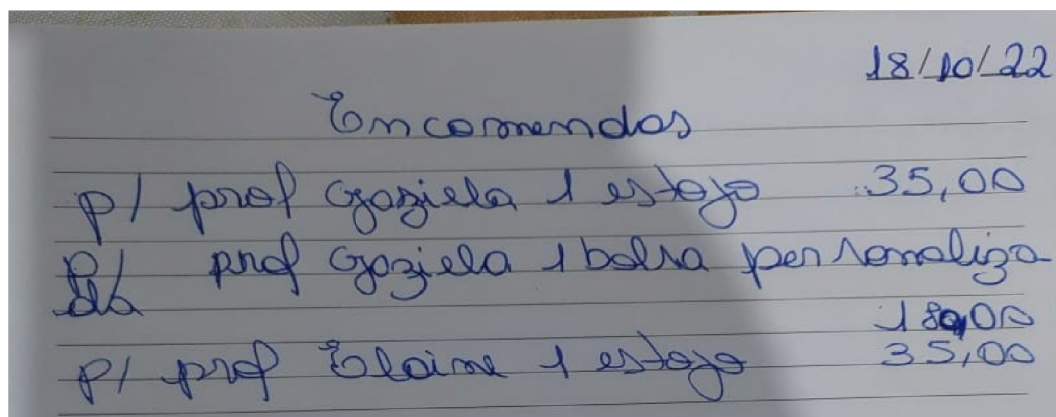 18/10/22
Encomendas
p/ prof Goziela 1 estojo 35,00
p/ prof Goziela 1 bolsa personaliza
da
180,00
p/ prof Elaine 1 estojo 35,00